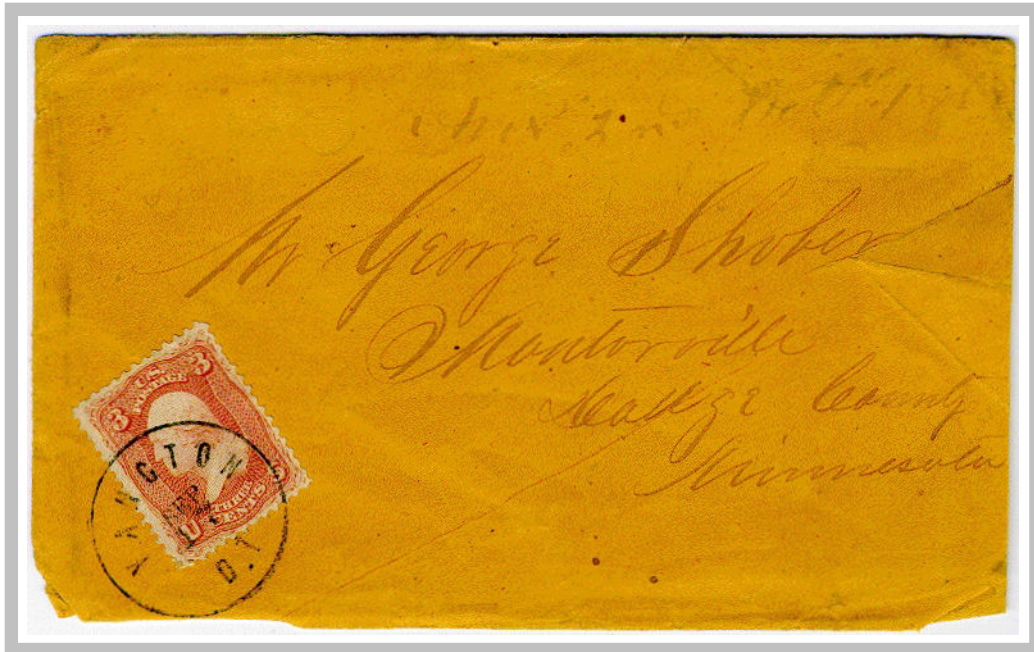 Mr. George Shober
Mantorville
Dodge County
Minnesota
3 U.S. POSTAGE 3
U THREE CENTS S
YANCTON D.T.
SEP